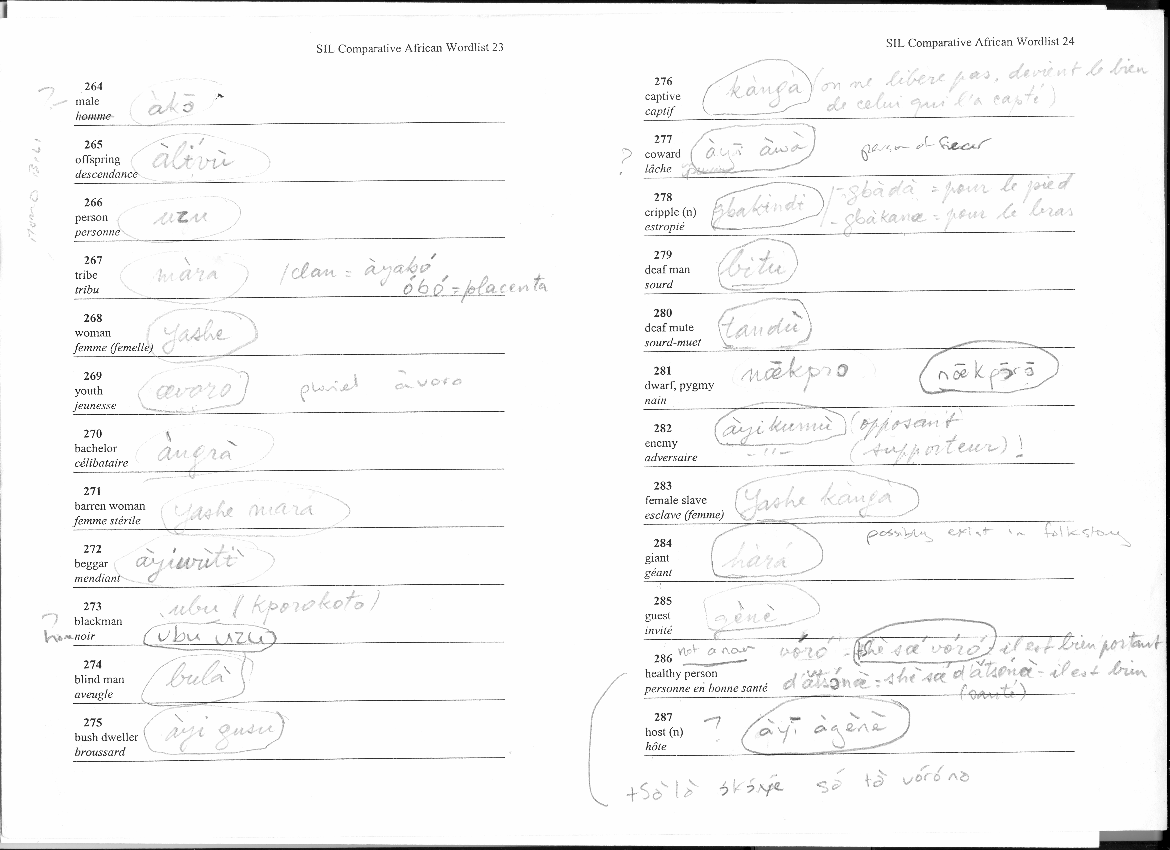 SIL Comparative African Wordlist 23
264
male àkɔ̄
homme
265
offspring àlívù
descendance
266
person uzu
personne
267
tribe màrà /clan = àyabó
tribu óbó = placenta
268
woman yashe
femme (femelle)
269
youth ævoro pluriel àvoro
jeunesse
270
bachelor àngrà
célibataire
271
barren woman yashe mara
femme stérile
272
beggar àyiwùtì
mendiant
273
? blackman ubu (kporokoto)
noir ubu uzu
274
blind man bulà
aveugle
275
bush dweller àyi gusu
broussard
SIL Comparative African Wordlist 24
276
captive kàngà (on ne libere pas, devient le bien
captif de celui qui l'a capté)
277
? coward àyī àwà person of fear
lâche
278
cripple (n) gbakindi /- gbàdà = pour le pied
estropié - gbàkanæ = pour le bras
279
deaf man bitu
sourd
280
deaf mute tandù
sourd-muet
281
dwarf, pygmy nœ̄kpro nœ̄kpɔ̄rɔ̄
nain
282
enemy àyikumù (opposant
adversaire -"- (supporteur) !
283
female slave yashe kàngà
esclave (femme)
284 possibly exist in folkstory
giant hàrá
géant
285
guest gènè
invité
286 not a noun vóró - shè sá vóró - il est bien portant
healthy person
personne en bonne santé d'átsónà = shè sá d'átsónà - il est bien
(santé)
287
host (n) ? àyī àgènè
hôte
+Sà là só tà vóróno